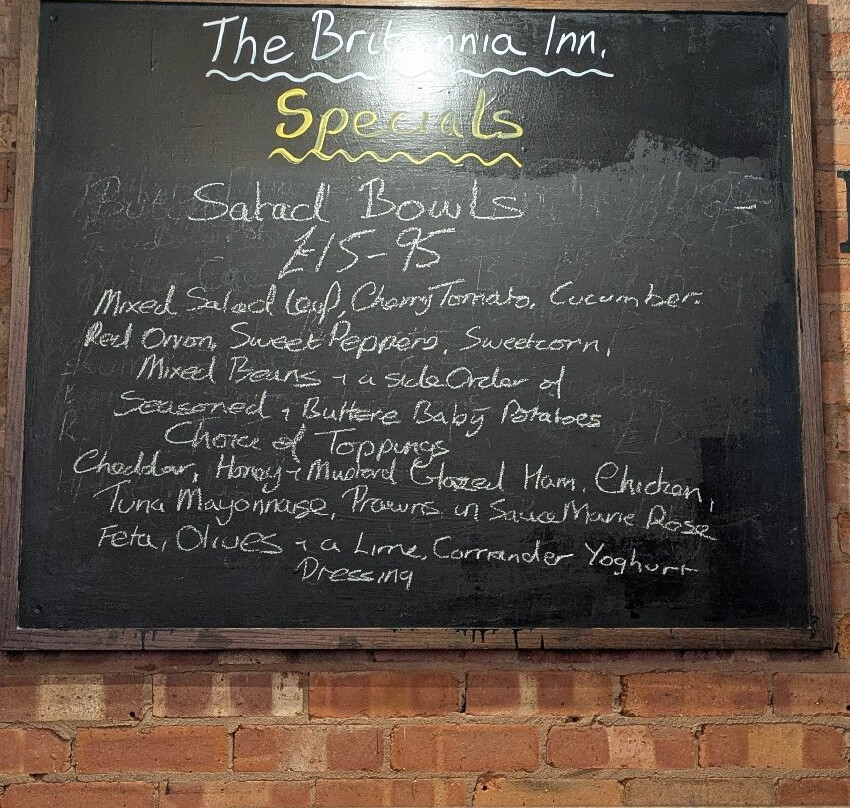 The Britannia Inn.
Specials
Salad Bowls
£15-95
Mixed Salad Leaf, Cherry Tomato, Cucumber.
Red Onion, Sweet Peppers, Sweetcorn,
Mixed Beans + a side Order of
Seasoned + Buttere Baby Potatoes
Choice of Toppings
Cheddar, Honey + Mustard Glazed Ham, Chicken,
Tuna Mayonnaise, Prawns in Sauce Marie Rose
Feta, Olives + a Lime, Corriander Yoghurt
Dressing